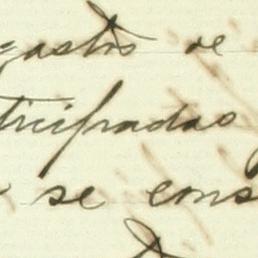 gastos de
ticipadas
se cons